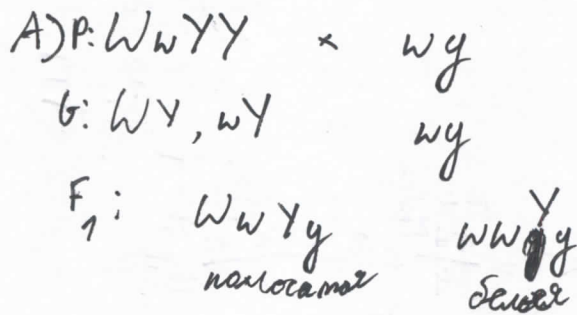 A) P: WwYY × wy
G: WY, wY wy
F1: WwYy wwYy
полосатая белая